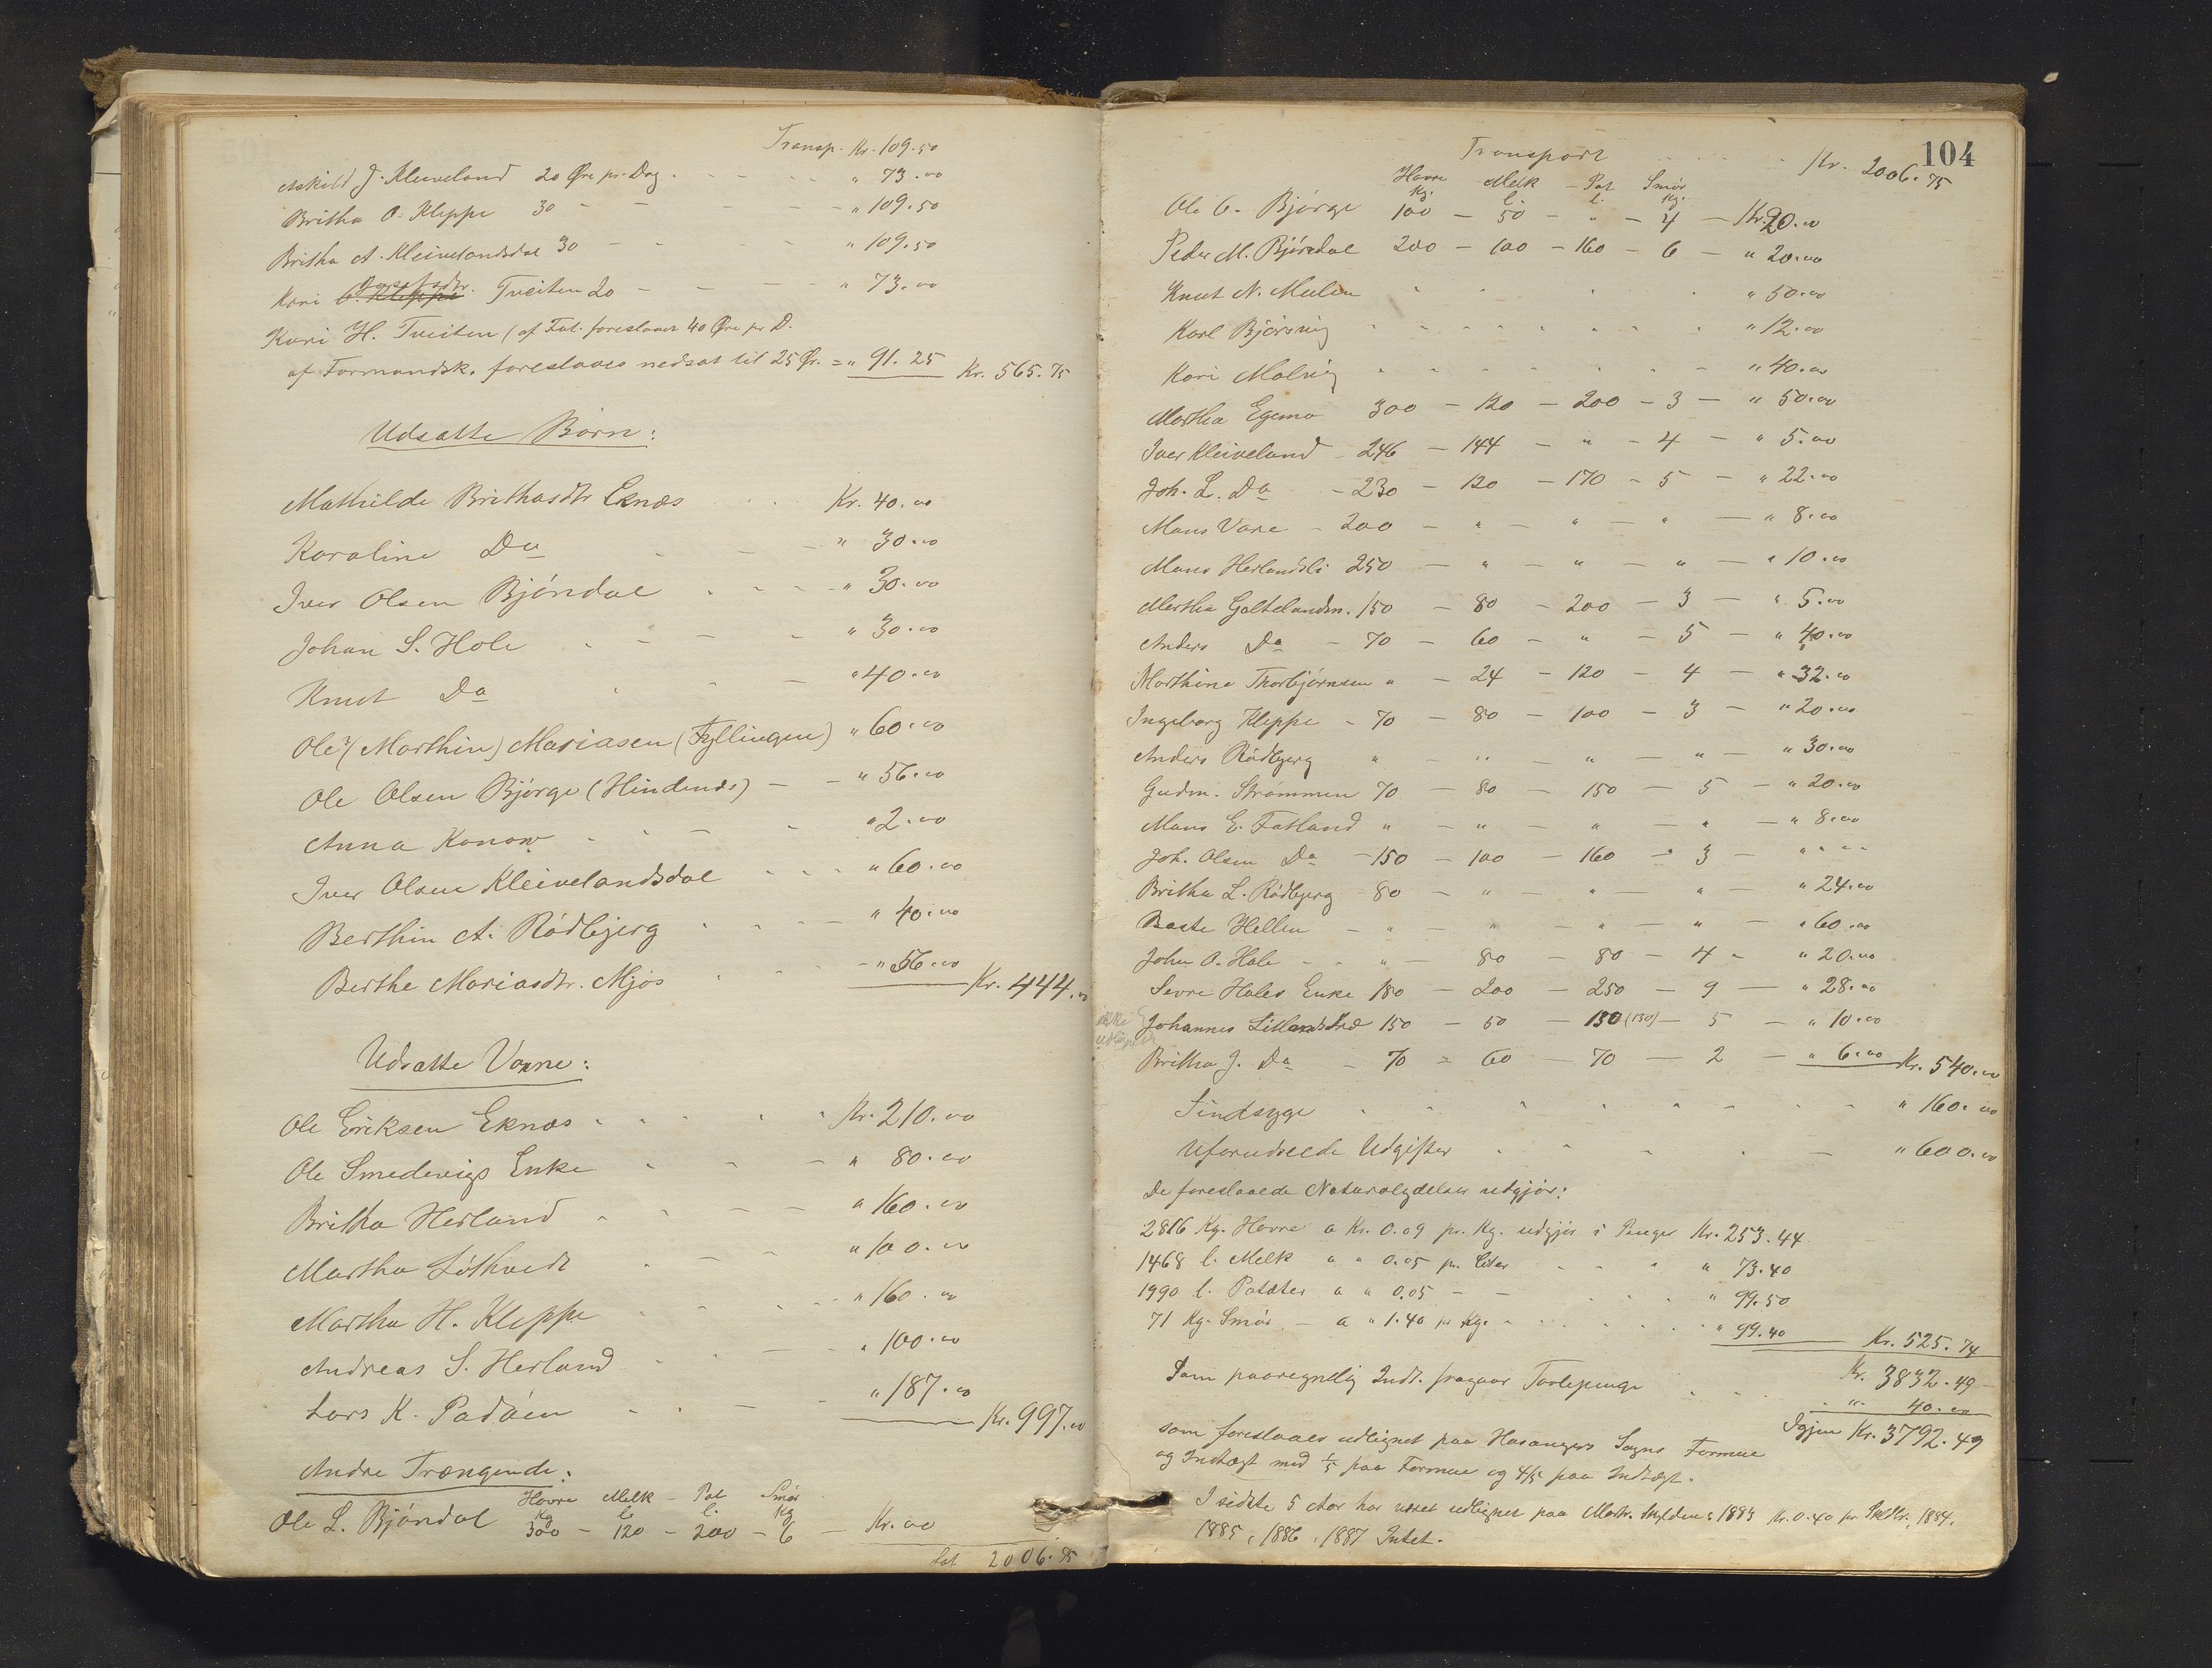 Transp. Kr. 109.50
Askild J. Kleiveland 20 Øre pr. Dag . - - - " 73.00
Britha O. Kleppe 30 - - - - " 109.50
Britha A. Kleivelandsdal 30 - - - " 109.50
Kari Tveiten 20 - - - " 73.00
Kari H. Tveiten (af Fat. foreslaaet 40 Øre pr D.
af Formandsk. foreslaaes nedsat til 25 Ør. = " 91.25 Kr. 565.75
Udsatte Børn:
Mathilde Brithasdtr Eknæs . . Kr. 40.00
Karoline Do - - - " 30.00
Iver Olsen Bjöndal . - - - " 30.00
Johan S. Hole . - - - " 30.00
Knut Do . - - " 40.00
Ole (Marthin) Mariasen (Fyllingen) " 60.00
Ole Olsen Bjørge (Hindenæs) - - " 56.00
Anna Konow . - - - " 2.00
Iver Olsen Kleivelandsdal - - - " 60.00
Berthin A. Rödbjerg . - - - " 40.00
Berthe Mariasdtr. Mjøs . . - - " 56.00 Kr. 444.00
Udsatte Voxne:
Ole Eriksen Eknæs . - - - - Kr. 210.00
Ole Smedevigs Enke . - - " 80.00
Britha Herland - . - - " 160.00
Martha Löthvedt . - - " 100.00
Martha H. Kleppe . - - - " 160.00
Andreas S. Herland - - - - " 100.00
Lars K. Padöen . - - - " 187.00 Kr. 997.00
Andre Trængende:
Havre Melk - Pot Smør
Kg l. l. Kg
Ole L. Bjöndal 300 - 120 - 200 - 6 - Kr. 00
Lat 2006.75
104
Transport . . . . . Kr. 2006.75
Havre Melk - Pot Smør
Kg. l. l. Kg.
Ole O. Bjørge 100 - 50 - " - 4 - Kr. 20.00
Peder M. Bjöndal 200 - 100 - 160 - 6 - " 20.00
Knut N. Mulen - - - " 50.00
Karl Bjørsvig - - - - - - - - " 12.00
Kari Molvig - - - - - - - - " 40.00
Martha Egemo 300 - 120 - 200 - 3 - " 50.00
Iver Kleiveland - 246 - 144 - " - 4 - " 5.00
Joh. L. Do - 230 - 120 - 170 - 5 - " 22.00
Mons Vare - 200 - " - " - " - " 8.00
Mons Herlandsli 250 - " - " - " - " 10.00
Martha Galtelandsm. 150 - 80 - 200 - 3 - " 5.00
Anders Do - 70 - 60 - " - 5 - " 40.00
Marthine Thorbjørnsen " - 24 - 120 - 4 - " 32.00
Ingeborg Kleppe - 70 - 80 - 100 - 3 - " 20.00
Anders Rödbjerg " - " - " - " - " 30.00
Gudm. Strømmen 70 - 80 - 150 - 5 - " 20.00
Mons E. Fatland " - " - " - " - " 8.00
Joh. Olsen Do - 150 - 100 - 160 - 3 - " " - -
Britha L. Rödbjerg - 80 - " - " - " - " 24.00
Baste Hellen - " - " - " - " - " 60.00
John O. Hole - - " - 80 - 80 - 4 - " 20.00
Sevre Holes Enke 180 - 200 - 250 - 9 - " 28.00
ikke
udlignet
Johannes Litlandstræ 150 - 50 - 130 (130) - 5 - " 10.00
Britha J. Do - 70 - 60 - 70 - 2 - " 6.00 Kr. 540.00
Sindsyge . - - - - - - - " 160.00
Uforudseede Udgifter . - - . - " 600.00
De foreslaaede Naturalydelser udgjør:
2816 Kg. Havre a Kr. 0.09 pr. Kg. udgjør i Penger Kr. 253.44
1468 l. Melk a " 0.05 pr. Liter - - - " 73.40
1990 l. Potæter a " 0.05 - - . . . " 99.50
71 Kg. Smør - a " 1.40 pr Kg. - - . . . . " 99.40 Kr. 525.74
Kr. 3832.49
Som paaregnelig Indt. fragaar Tarlepenge . . - " 40.00
Igjen Kr. 3792.49
som foreslaaes udlignet paa Hosangers Sogns Formue
og Indtægt med 1/5 paa Formue og 4/5 paa Indtægt.
I sidste 5 Aar har været udlignet paa Matr. Skylden: 1883 Kr. 0.40 pr Skdlr., 1884,
1885, 1886, 1887 Intet.